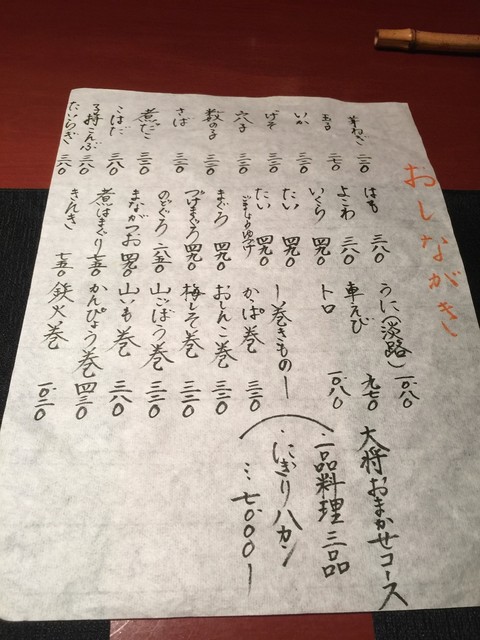 おしながき
芽ねぎ 三二〇
玉子 二七〇
いか 三二〇
げそ 三二〇
穴子 三二〇
数の子 三二〇
さば 三二〇
煮だこ 三二〇
こはだ 三八〇
子持こんぶ 三八〇
たいらぎ 三八〇
はも 三八〇
よこわ 三八〇
いくら 四九〇
たい 四九〇
たい 四九〇
ごましょうゆづけ
まぐろ 四九〇
づけまぐろ 四九〇
のどぐろ 六五〇
まながつお 四九〇
煮はまぐり 七五〇
きんき 七五〇
うに(淡路) 一、〇八〇
車えび 九七〇
トロ 一、〇八〇
ー巻きものー
かっぱ巻 三二〇
おしんこ巻 三二〇
梅しそ巻 三二〇
山ごぼう巻 三二〇
山いも巻 三八〇
かんぴょう巻 四三〇
鉄火巻 一、〇三〇
大将おまかせコース
・一品料理三品
・にぎり八カン
…七、〇〇〇ー